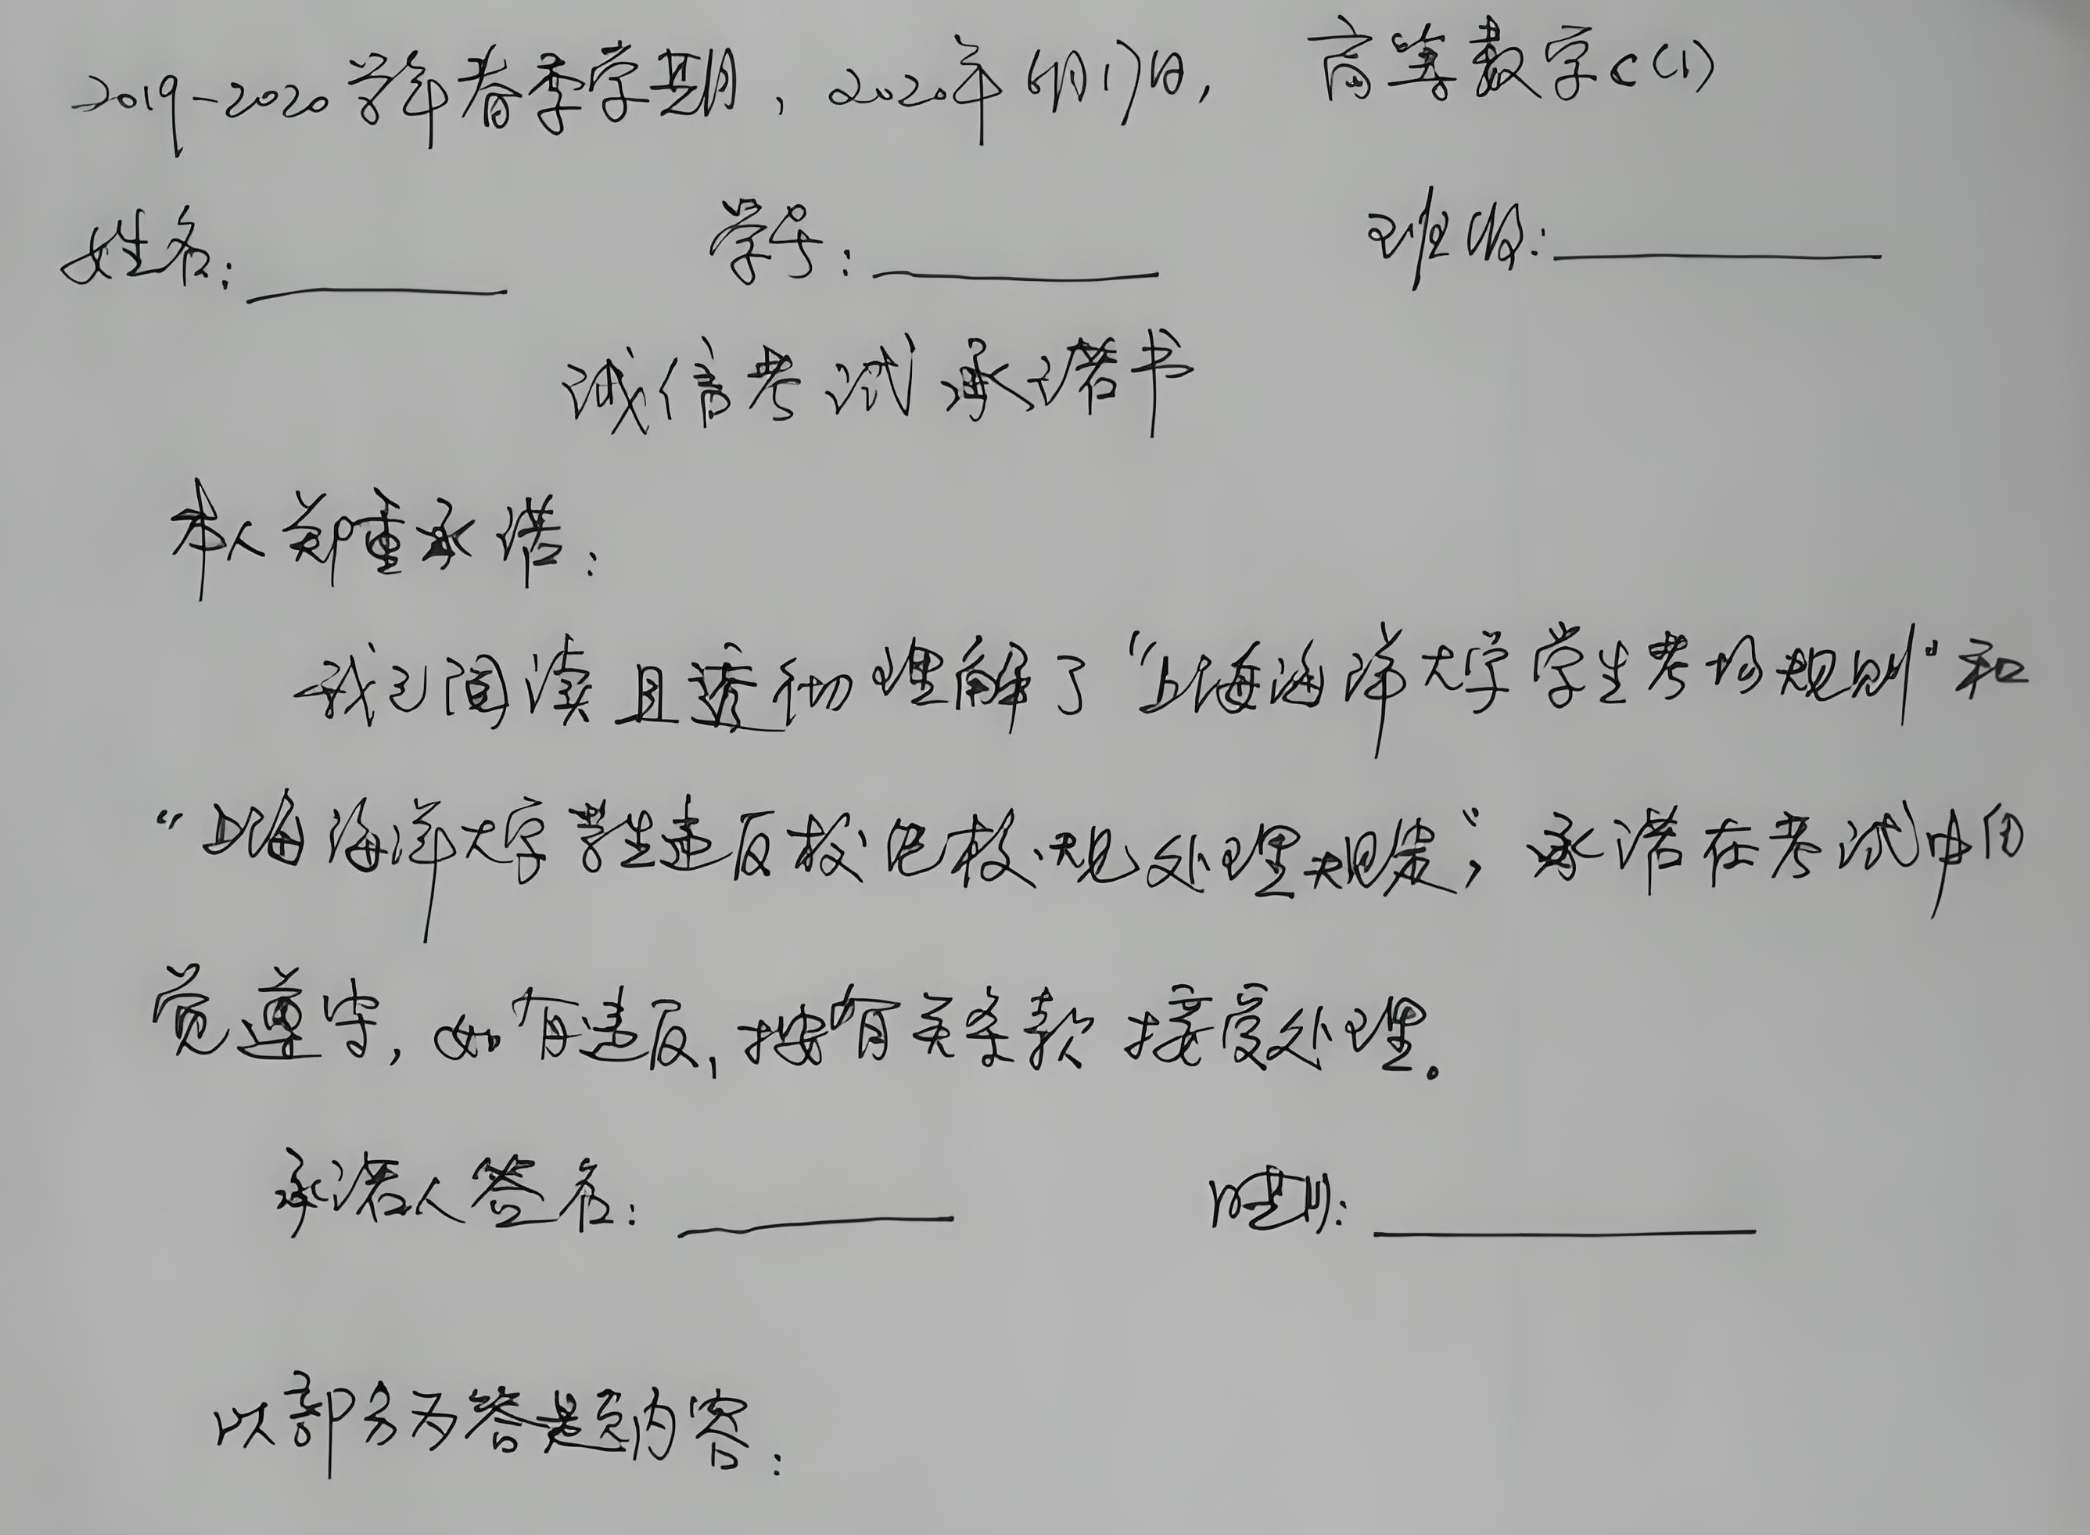 2019-2020学年春季学期，2020年6月17日， 高等数学C(1)
姓名：________ 学号：________ 班级：________
诚信考试承诺书
本人郑重承诺：
我已阅读且透彻理解了“上海海洋大学学生考场规则”和
“上海海洋大学学生违反校纪校规处理规定”，承诺在考试中自
觉遵守，如有违反，按有关条款接受处理。
承诺人签名：________ 日期：________
以部分为答题内容：